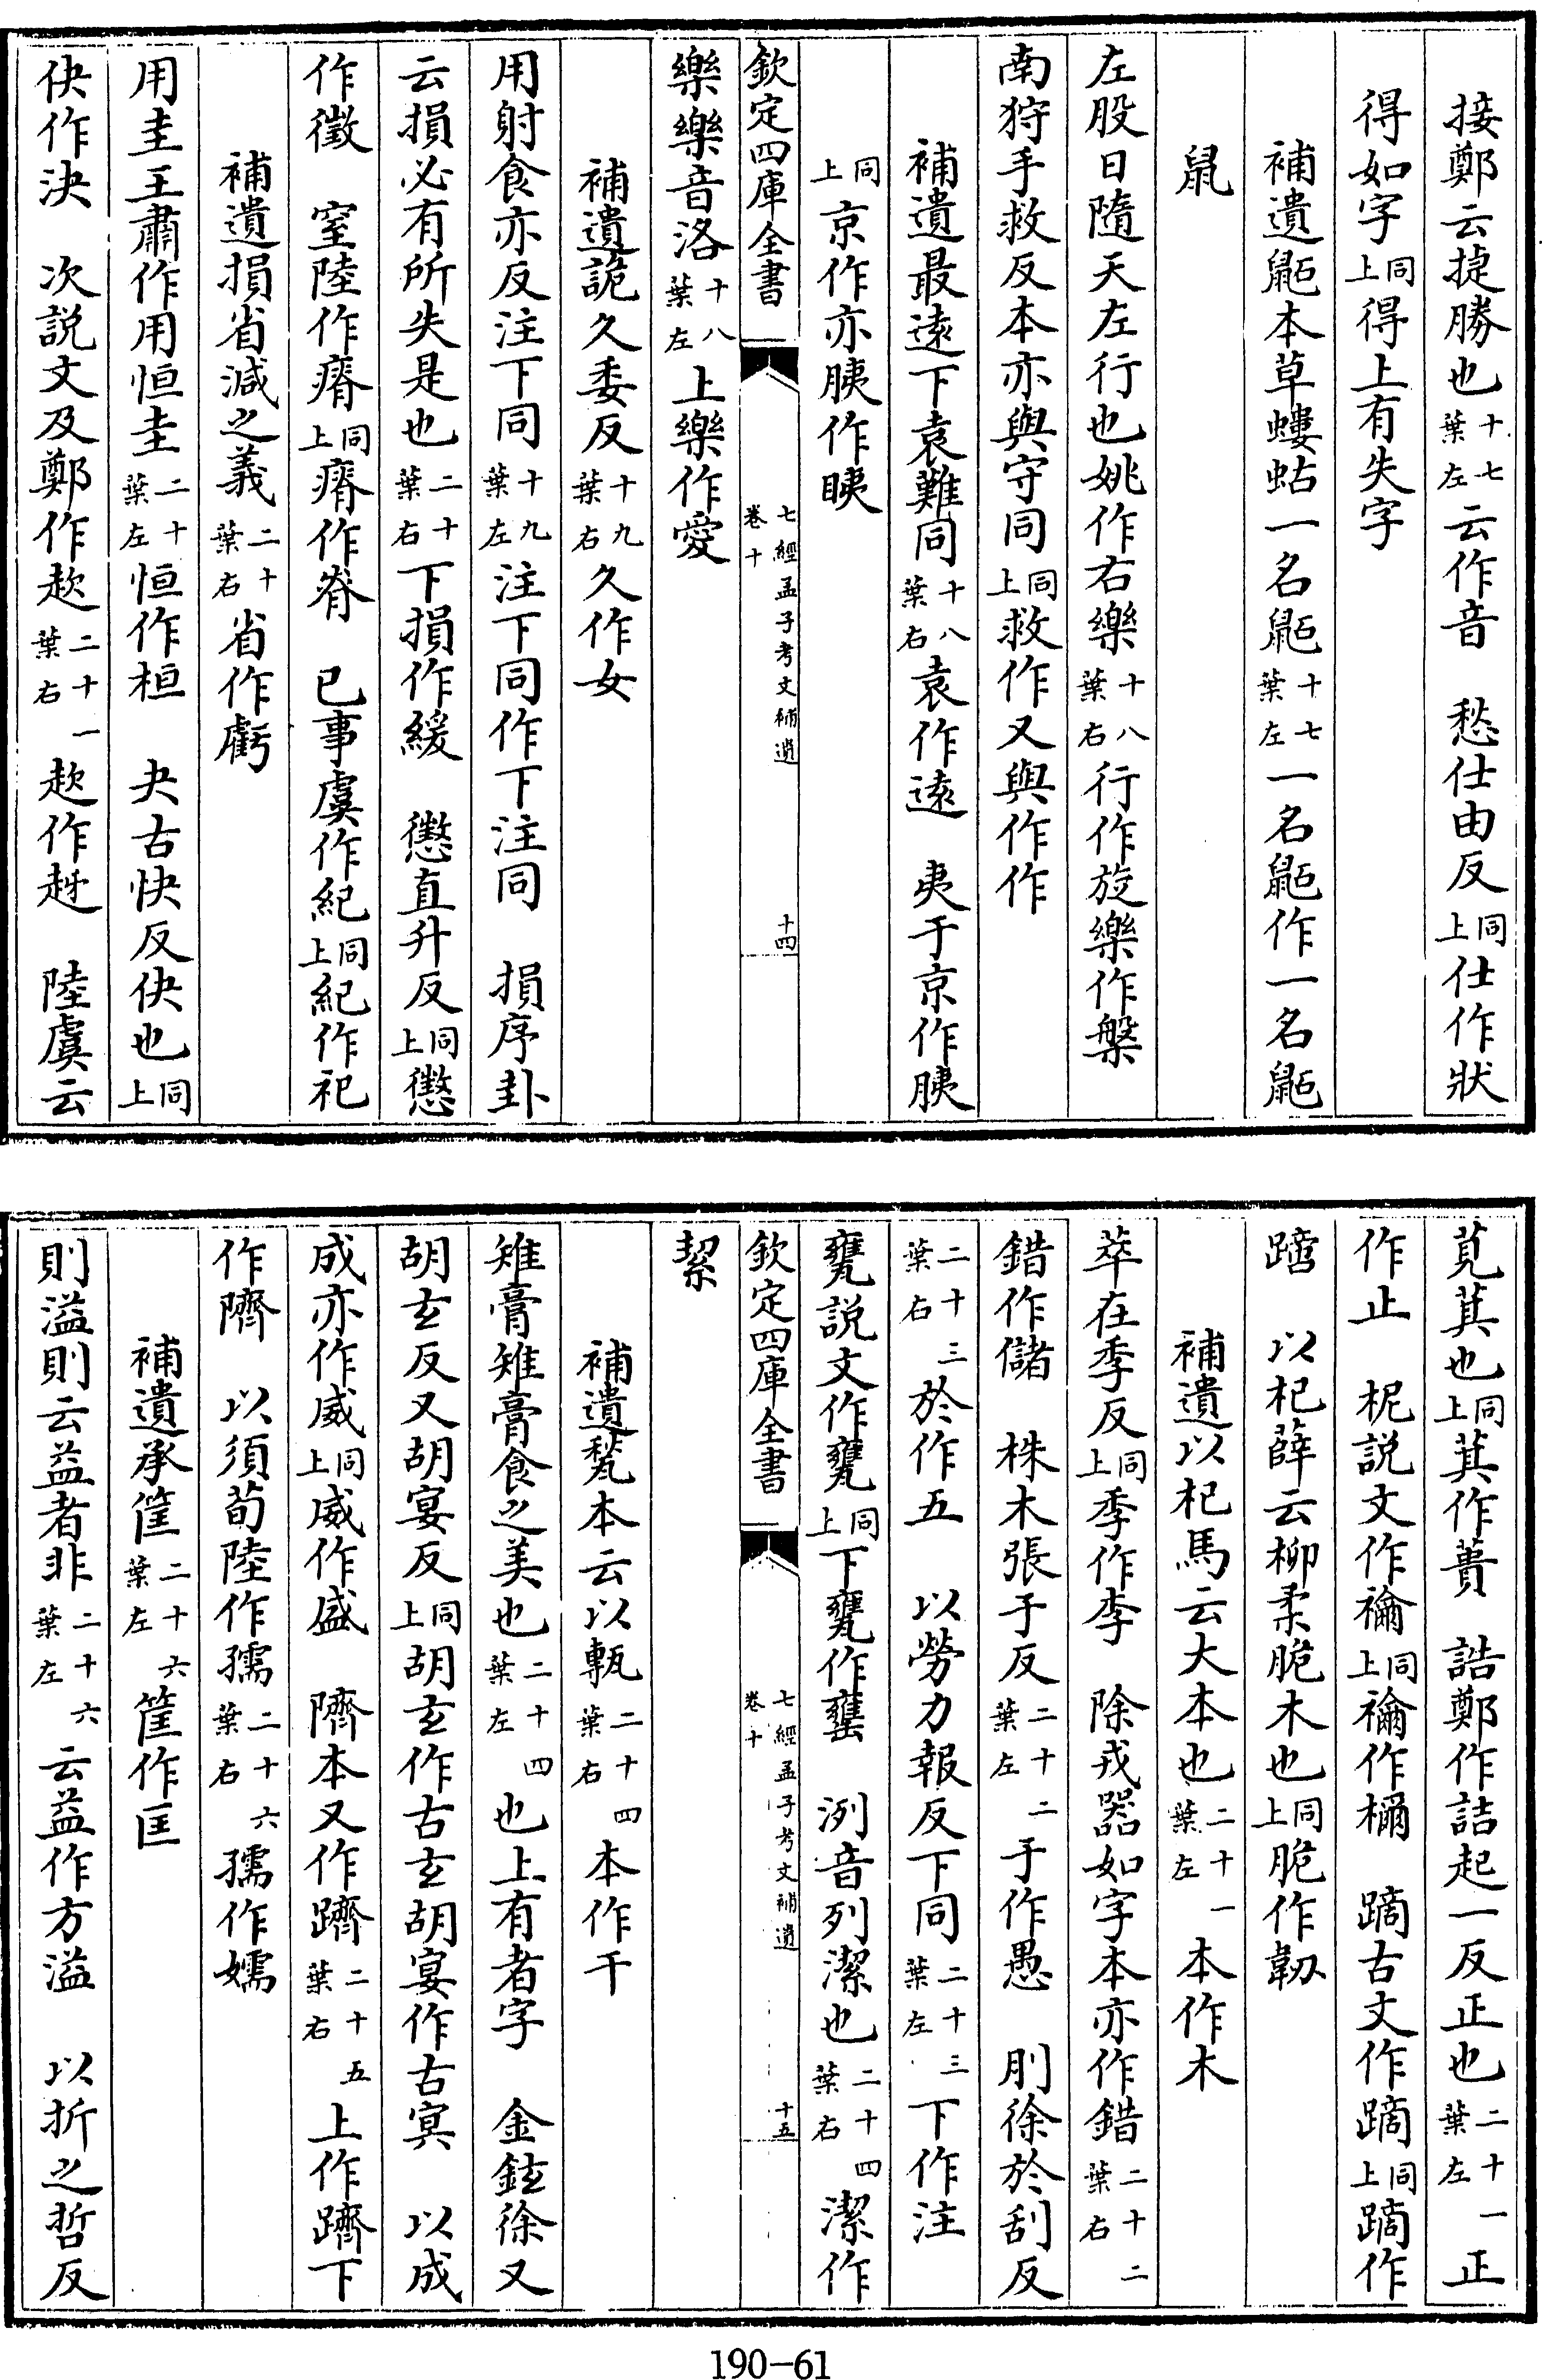 接鄭云捷勝也十七葉左云作音　愁仕由反同上仕作狀
得如字同上得上有失字
補遺鼫本草螻蛄一名鼫十七葉左一名鼫作一名鼫
鼠
左股日隨天左行也姚作右樂十八葉右行作旋樂作槃
南狩手救反本亦與守同同上救作又與作作
補遺最遠下袁難同十八葉右袁作遠　夷于京作胰
同上京作亦胰作眱
欽定四庫全書　七經孟子考文補遺　卷十　十四
樂樂音洛十八葉左上樂作愛
補遺詭久委反十九葉右久作女
用射食亦反注下同十九葉左注下同作下注同　損序卦
云損必有所失是也二十葉右下損作緩　懲直升反同上懲
作徵　窒陸作㾊同上㾊作㟙　已事虞作紀同上紀作祀
補遺損省減之義二十葉右省作虧
用圭王肅作用恒圭二十葉左恒作桓　夬古快反佒也同上
佒作決　次說文及鄭作趑二十一葉右趑作趀　陸虞云
莧蕢也同上蕢作蕢　誥鄭作詰起一反正也二十一葉左正
作止　柅說文作禰同上禰作檷　蹢古文作蹢同上蹢作
蹢　以杞薛云柳柔脆木也同上脆作韌
補遺以杞馬云大本也二十一葉左本作木
萃在季反同上季作李　除戎器如字本亦作錯二十二葉右
錯作儲　株木張于反二十二葉左于作愚　刖徐於刮反
二十三葉右於作五　以勞力報反下同二十三葉左下作注
甕說文作甕同上下甕作罋　洌音列潔也二十四葉右潔作
欽定四庫全書　七經孟子考文補遺　卷十　十五
絜
補遺甃本云以甎二十四葉右本作干
雉膏雉膏食之美也二十四葉左也上有者字　金鉉徐又
胡玄反又胡宴反同上胡玄作古玄胡宴作古冥　以成
成亦作威同上威作盛　隮本又作躋二十五葉右上作躋下
作隮　以須荀陸作孺二十六葉右孺作嬬
補遺承筐二十六葉左筐作匡
則溢則云益者非二十六葉左云益作方溢　以折之哲反
190-61